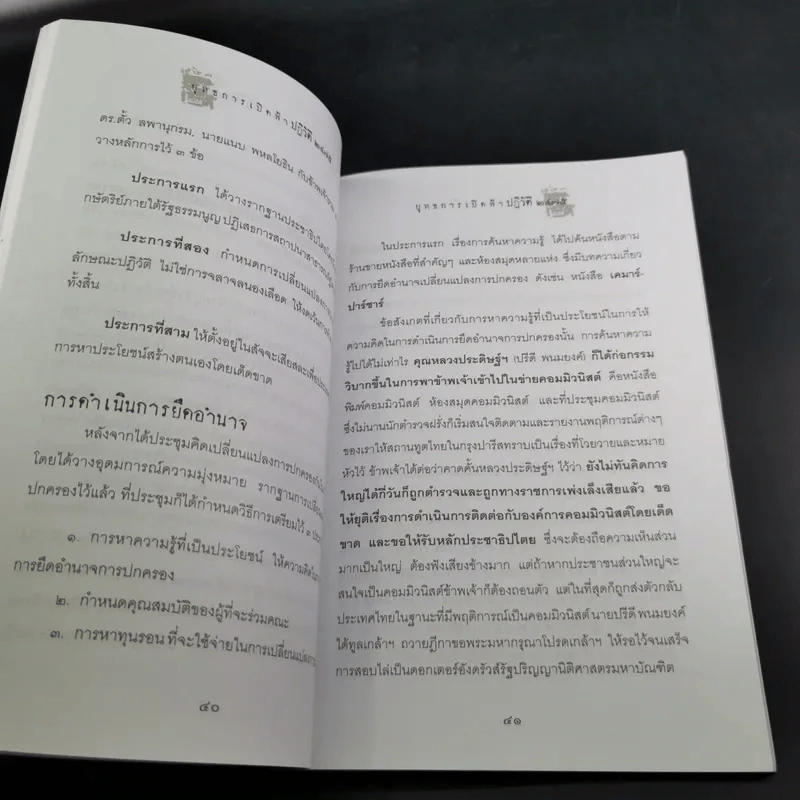 ยุทธการเปิดฟ้าปฏิวัติ ๒๔๗๕
ดร.ตั้ว ลพานุกรม, นายแนบ พหลโยธิน กับข้าพเจ้า
วางหลักการไว้ ๓ ข้อ
ประการแรก ได้วางรากฐานประชาธิปไตย
กษัตริย์ภายใต้รัฐธรรมนูญ ปฏิเสธการสถาปนาสาธารณรัฐ
ประการที่สอง กำหนดการเปลี่ยนแปลงการ
ลักษณะปฏิวัติ ไม่ใช่การจลาจลนองเลือด ให้งดเว้นการ
ทั้งสิ้น
ประการที่สาม ให้ตั้งอยู่ในสัจจะเสียสละเพื่อ
การหาประโยชน์สร้างตนเองโดยเด็ดขาด
การดำเนินการยึดอำนาจ
หลังจากได้ประชุมคิดเปลี่ยนแปลงการปกครอง
โดยได้วางอุดมการณ์ความมุ่งหมาย รากฐานการเปลี่ยน
ปกครองไว้แล้ว ที่ประชุมก็ได้กำหนดวิธีการเตรียมไว้ ๓
๑. การหาความรู้ที่เป็นประโยชน์ ให้ความคิดใน
การยึดอำนาจการปกครอง
๒. กำหนดคุณสมบัติของผู้ที่จะร่วมคณะ
๓. การหาทุนรอน ที่จะใช้จ่ายในการเปลี่ยนแปลง
๔๐
ยุทธการเปิดฟ้าปฏิวัติ ๒๔๗๕
ในประการแรก เรื่องการค้นหาความรู้ ได้ไปค้นหนังสือตาม
ร้านขายหนังสือที่สำคัญๆ และห้องสมุดหลายแห่ง ซึ่งมีบทความเกี่ยว
กับการยึดอำนาจเปลี่ยนแปลงการปกครอง ดังเช่น หนังสือ เคมาร์-
ปาร์ซาร์
ข้อสังเกตที่เกี่ยวกับการหาความรู้ที่เป็นประโยชน์ในการให้
ความคิดในการดำเนินการยึดอำนาจการปกครองนั้น การค้นหาความ
รู้ไปได้ไม่เท่าไร คุณหลวงประดิษฐ์ฯ (ปรีดี พนมยงค์) ก็ได้ก่อกรรม
วิบากขึ้นในการพาข้าพเจ้าเข้าไปในข่ายคอมมิวนิสต์ คือหนังสือ
พิมพ์คอมมิวนิสต์ ห้องสมุดคอมมิวนิสต์ และที่ประชุมคอมมิวนิสต์
ซึ่งไม่นานนักตำรวจฝรั่งก็เริ่มสนใจติดตามและรายงานพฤติการณ์ต่างๆ
ของเราให้สถานทูตไทยในกรุงปารีสทราบเป็นเรื่องที่โวยวายและหมาย
หัวไว้ ข้าพเจ้าได้ต่อว่าคาดคั้นหลวงประดิษฐ์ฯ ไว้ว่า ยังไม่ทันคิดการ
ใหญ่ได้กี่วันก็ถูกตำรวจและถูกทางราชการเพ่งเล็งเสียแล้ว ขอ
ให้ยุติเรื่องการดำเนินการติดต่อกับองค์การคอมมิวนิสต์โดยเด็ด
ขาด และขอให้รับหลักประชาธิปไตย ซึ่งจะต้องถือความเห็นส่วน
มากเป็นใหญ่ ต้องฟังเสียงข้างมาก แต่ถ้าหากประชาชนส่วนใหญ่จะ
สนใจเป็นคอมมิวนิสต์ข้าพเจ้าก็ต้องถอนตัว แต่ในที่สุดก็ถูกส่งตัวกลับ
ประเทศไทยในฐานะที่มีพฤติการณ์เป็นคอมมิวนิสต์ นายปรีดี พนมยงค์
ได้ทูลเกล้าฯ ถวายฎีกาขอพระมหากรุณาโปรดเกล้าฯ ให้รอไว้จนเสร็จ
การสอบไล่เป็นดอกเตอร์อังดรัวส์รัฐปริญญานิติศาสตรมหาบัณฑิต
๔๑